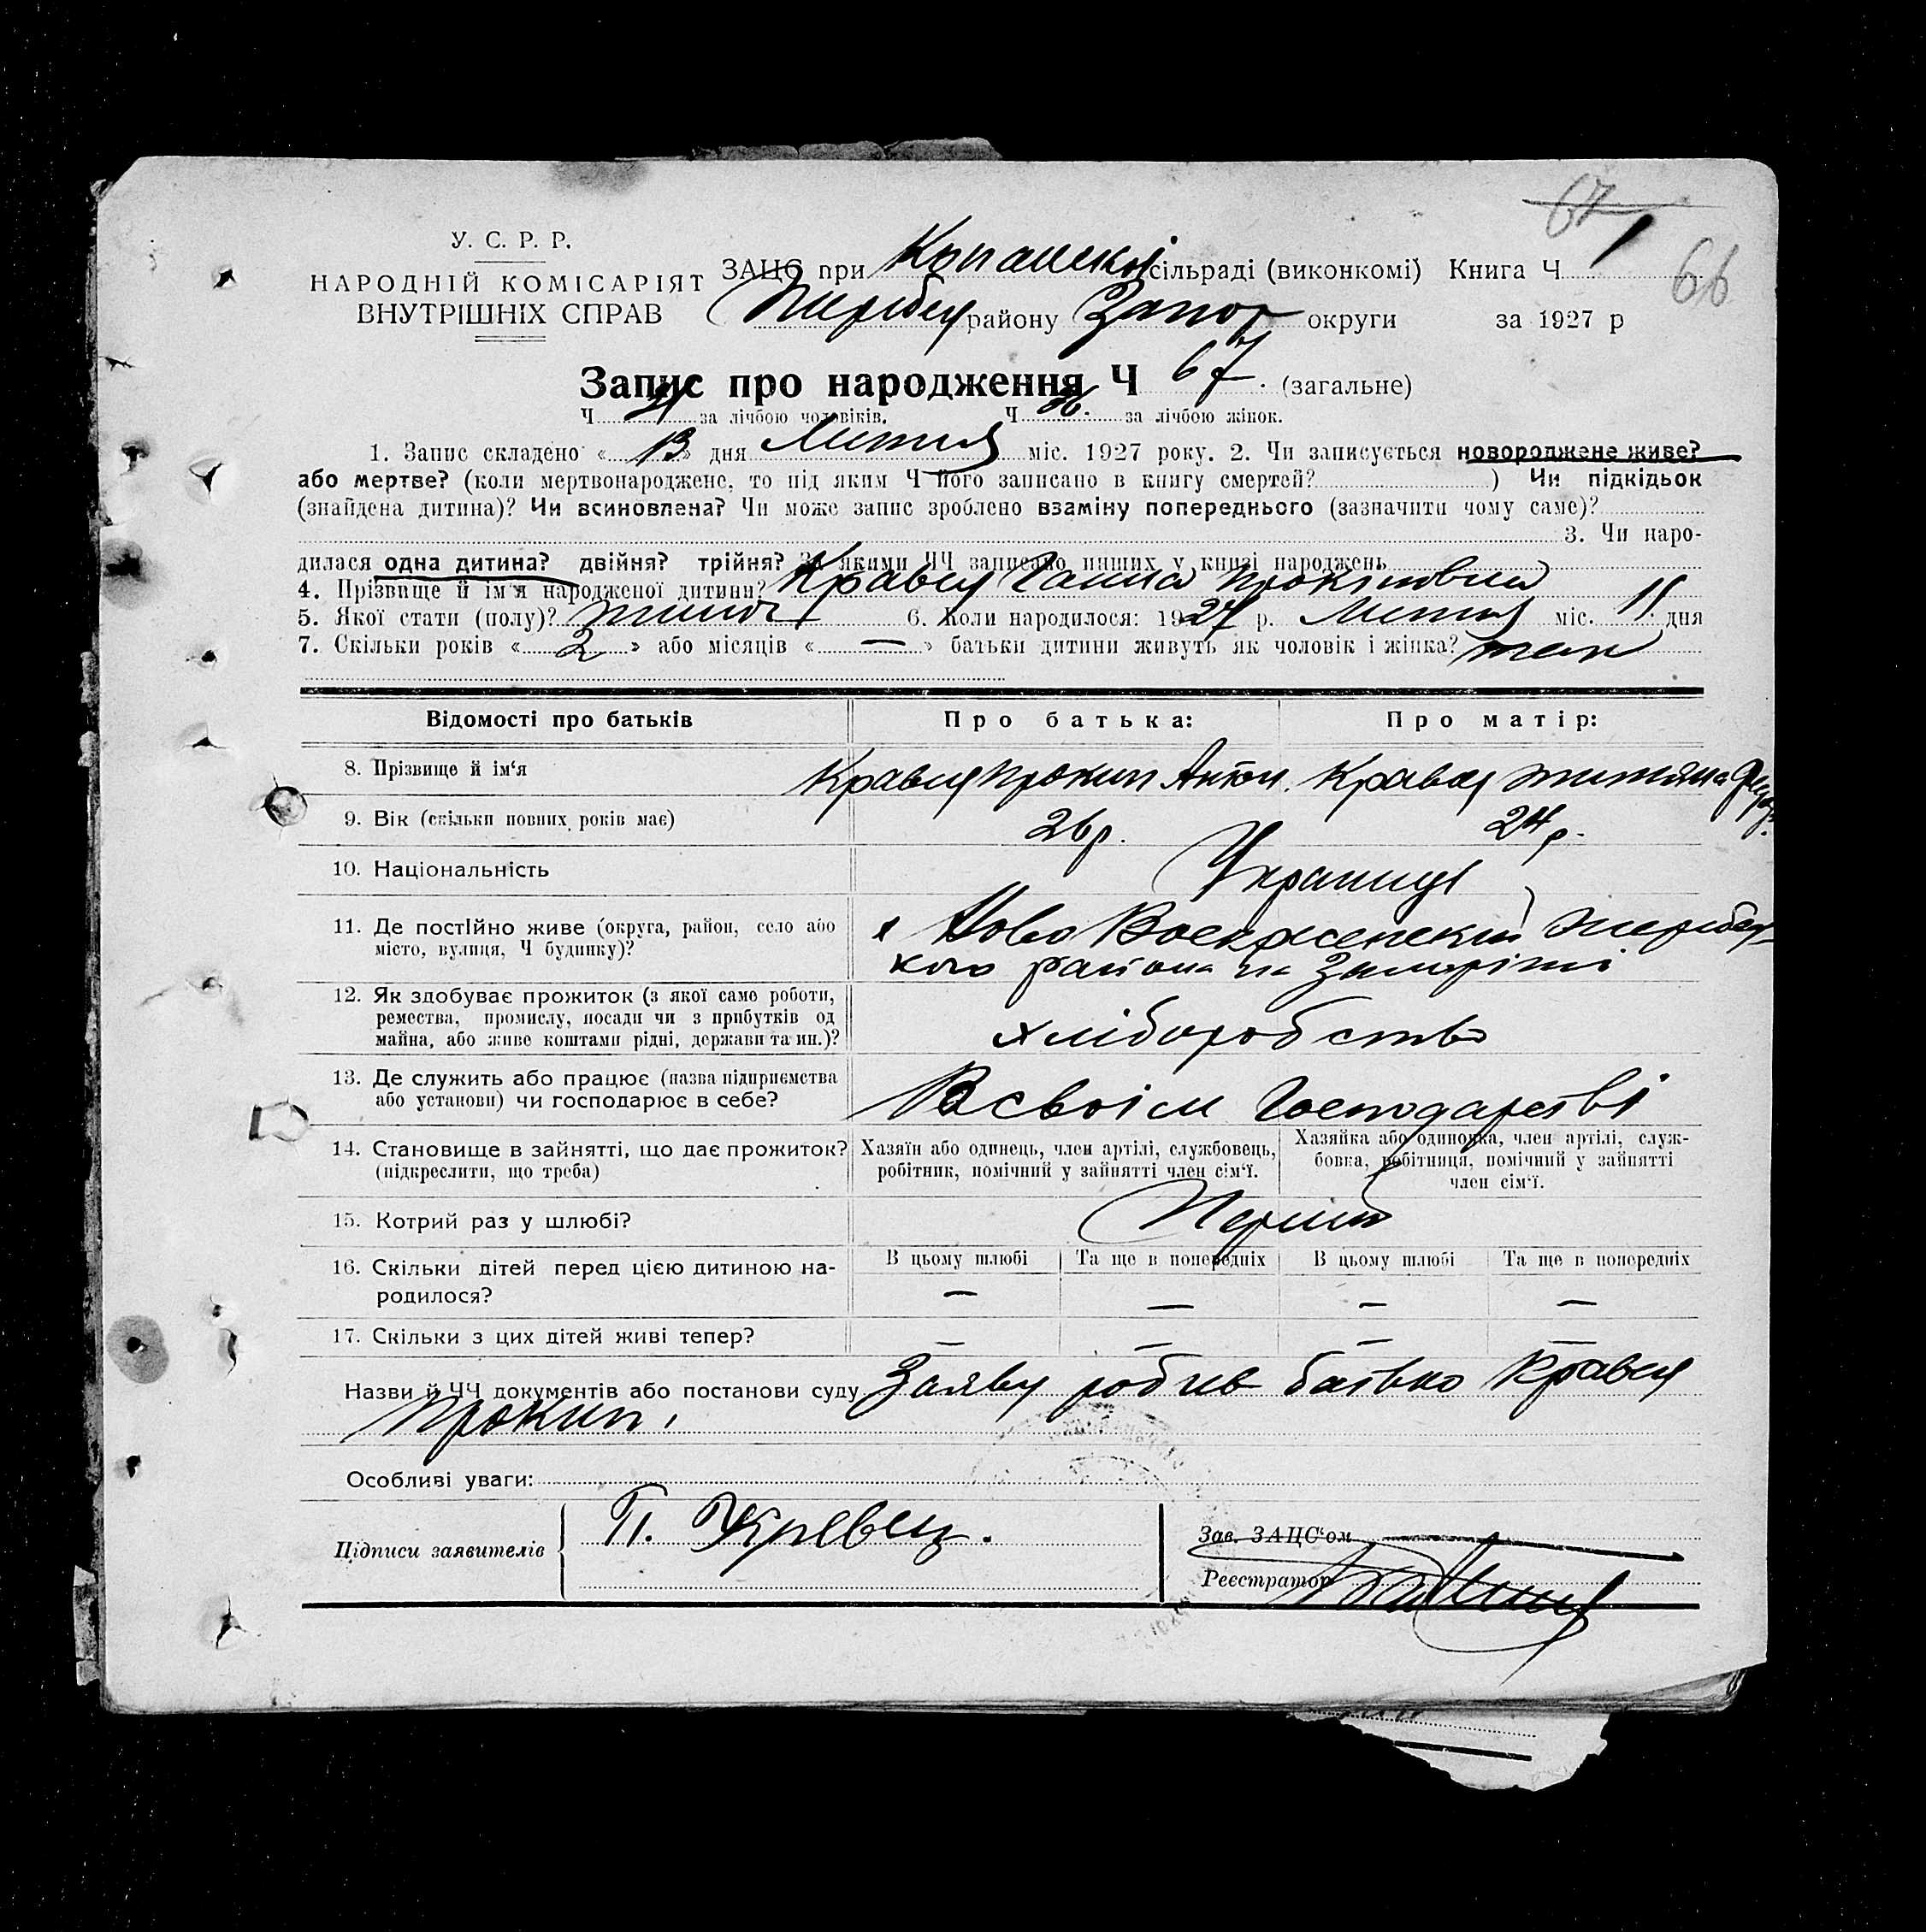 67
66
У. С. Р. Р.
НАРОДНІЙ КОМІСАРІЯТ
ВНУТРІШНІХ СПРАВ
ЗАЦС при Копанській сільраді (виконкомі) Книга Ч 1
району Запор округи за 1927 р
Запис про народження Ч 67. (загальне)
Ч. за лічбою чоловіків. Ч 36. за лічбою жінок.
1. Запис складено «13» дня Липня міс. 1927 року. 2. Чи записується новороджене живе?
або мертве? (коли мертвонароджене, то під яким Ч його записано в книгу смертей? ) Чи підкідьок
(знайдена дитина)? Чи всиновлена? Чи може запис зроблено взаміну попереднього (зазначити чому саме)?
3. Чи наро-
дилася одна дитина? двійня? трійня? За якими ЧЧ записано инших у книзі народжень
4. Прізвище й ім'я народженої дитини? Кравец Ганна Прокіпівна
5. Якої стати (полу)? жіноч 6. Коли народилося: 1927 р. Липня міс. 11 дня
7. Скільки років «2» або місяців «—» батьки дитини живуть як чоловік і жінка? так
Відомості про батьків
Про батька:
Про матір:
8. Прізвище й ім'я
Кравец Прокип Антон.
Кравец Федор.
9. Вік (скільки повних років має)
26 р.
24 р.
10. Національність
Українці
11. Де постійно живе (округа, район, село або
місто, вулиця, Ч будинку)?
х Ново Воскресенский Жеребец-
кого района на Запоріжі
12. Як здобуває прожиток (з якої само роботи,
ремества, промислу, посади чи з прибутків од
майна, або живе коштами рідні, держави та ин.)?
хліборобство
13. Де служить або працює (назва підприємства
або установи) чи господарює в себе?
В своїм Господарстві
14. Становище в зайнятті, що дає прожиток?
(підкреслити, що треба)
Хазяїн або одинець, член артілі, службовець,
робітник, помічний у зайнятті член сім'ї.
Хазяйка або одиночка, член артілі, служ-
бовка, робітниця, помічний у зайнятті
член сім'ї.
15. Котрий раз у шлюбі?
Перший
16. Скільки дітей перед цією дитиною на-
родилося?
В цьому шлюбі
Та ще в попередніх
В цьому шлюбі
Та ще в попередніх
— — — —
17. Скільки з цих дітей живі тепер?
— — — —
Назви й ЧЧ документів або постанови суду Заяву робив батько Кравец
Прокип,
Особливі уваги:
Підписи заявителів
П. Кревец.
Зав. ЗАЦС'ом
Реєстратор